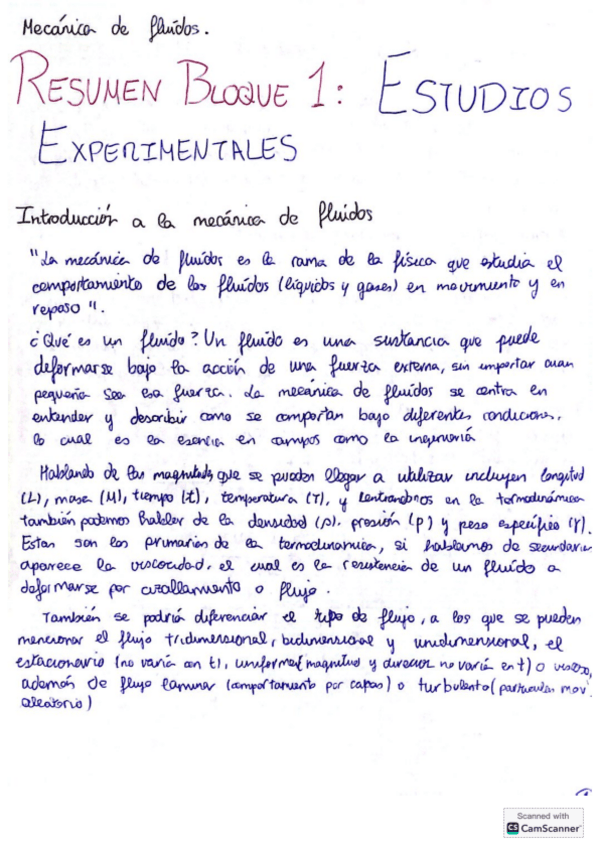 Mecánica de fluidos.
RESUMEN BLOQUE 1: ESTUDIOS
EXPERIMENTALES
Introducción a la mecánica de fluidos
"La mecánica de fluidos es la rama de la física que estudia el
comportamiento de los fluidos (líquidos y gases) en movimiento y en
reposo".
¿Qué es un fluido? Un fluido es una sustancia que puede
deformarse bajo la acción de una fuerza externa, sin importar cuan
pequeña sea esa fuerza. La mecánica de fluidos se centra en
entender y describir como se comportan bajo diferentes condiciones,
lo cual es la esencia en campos como la ingeniería
Hablando de las magnitudes que se pueden llegar a utilizar incluyen longitud
(L), masa (M), tiempo (t), temperatura (T), y centrandonos en la termodinámica
también podemos hablar de la densidad (ρ), presión (p) y peso específico (γ).
Estas son las primarias de la termodinamica, si hablamos de secundarias
aparece la viscosidad, el cual es la resistencia de un fluido a
deformarse por cizallamiento o flujo.
También se podría diferenciar el tipo de flujo, a los que se pueden
mencionar el flujo tridimensional, bidimensional y unidimensional, el
estacionario (no varía con t), uniforme (magnitud y dirección no varía en t) o viscoso,
además de flujo laminar (comportamiento por capas) o turbulento (particulas mov.
aleatorio)
Scanned with
CS CamScanner